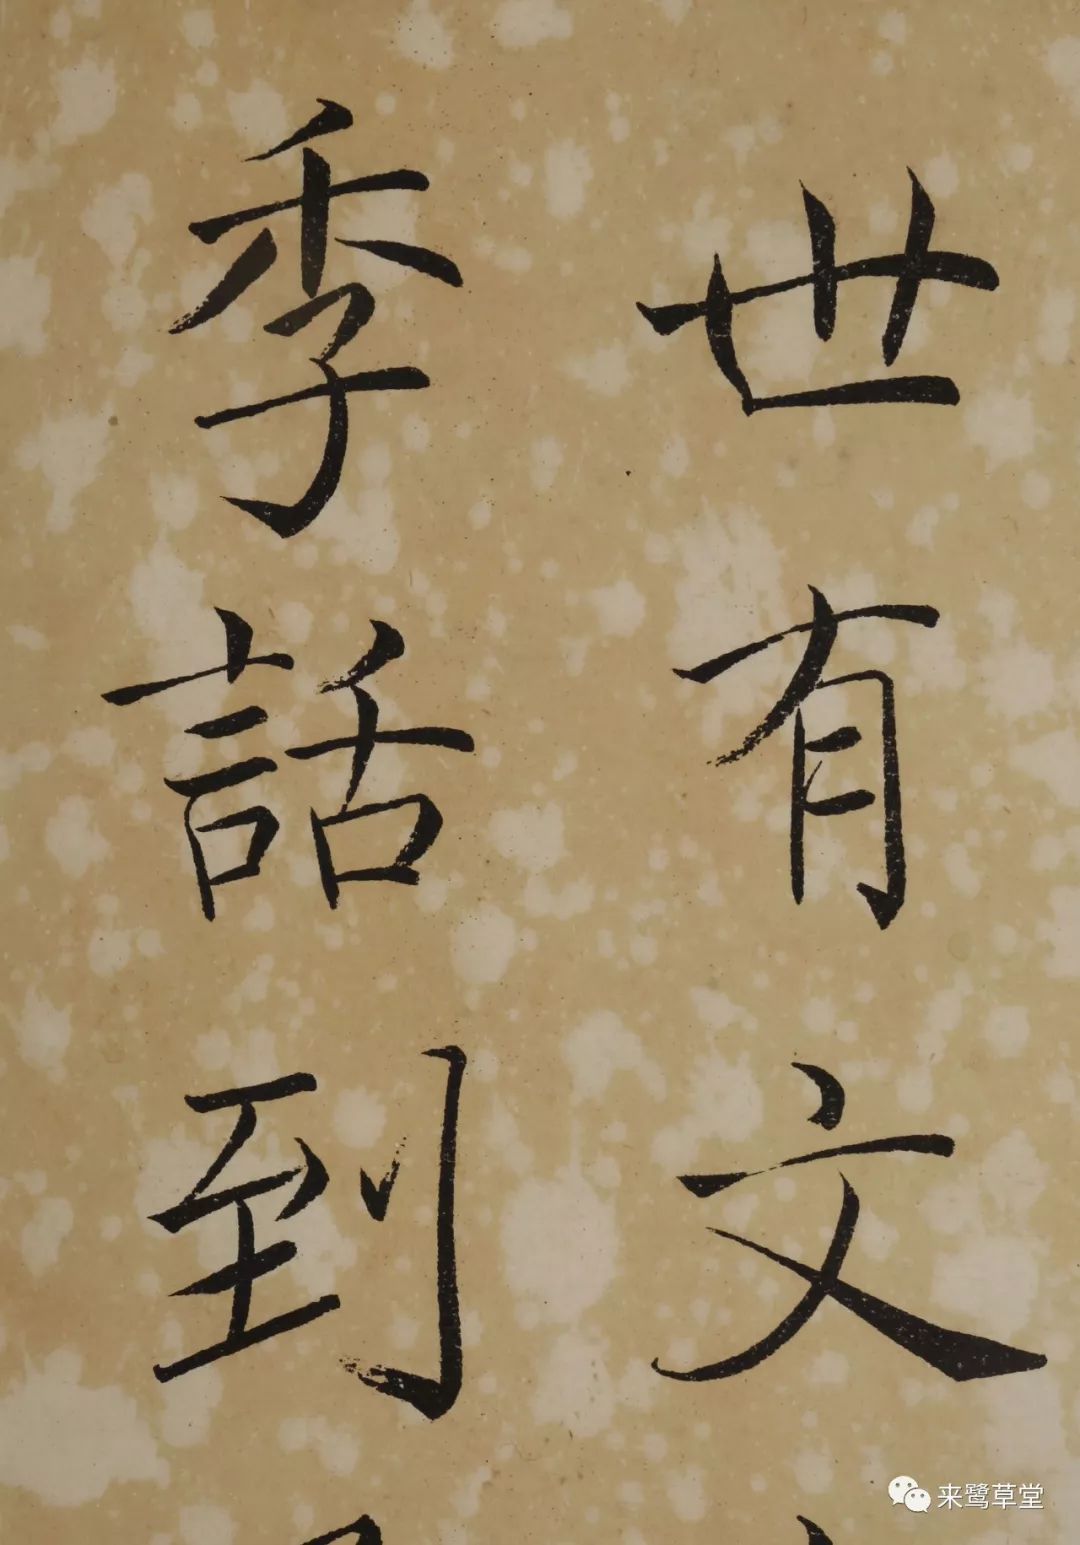 世有文
季話到
来鹭草堂